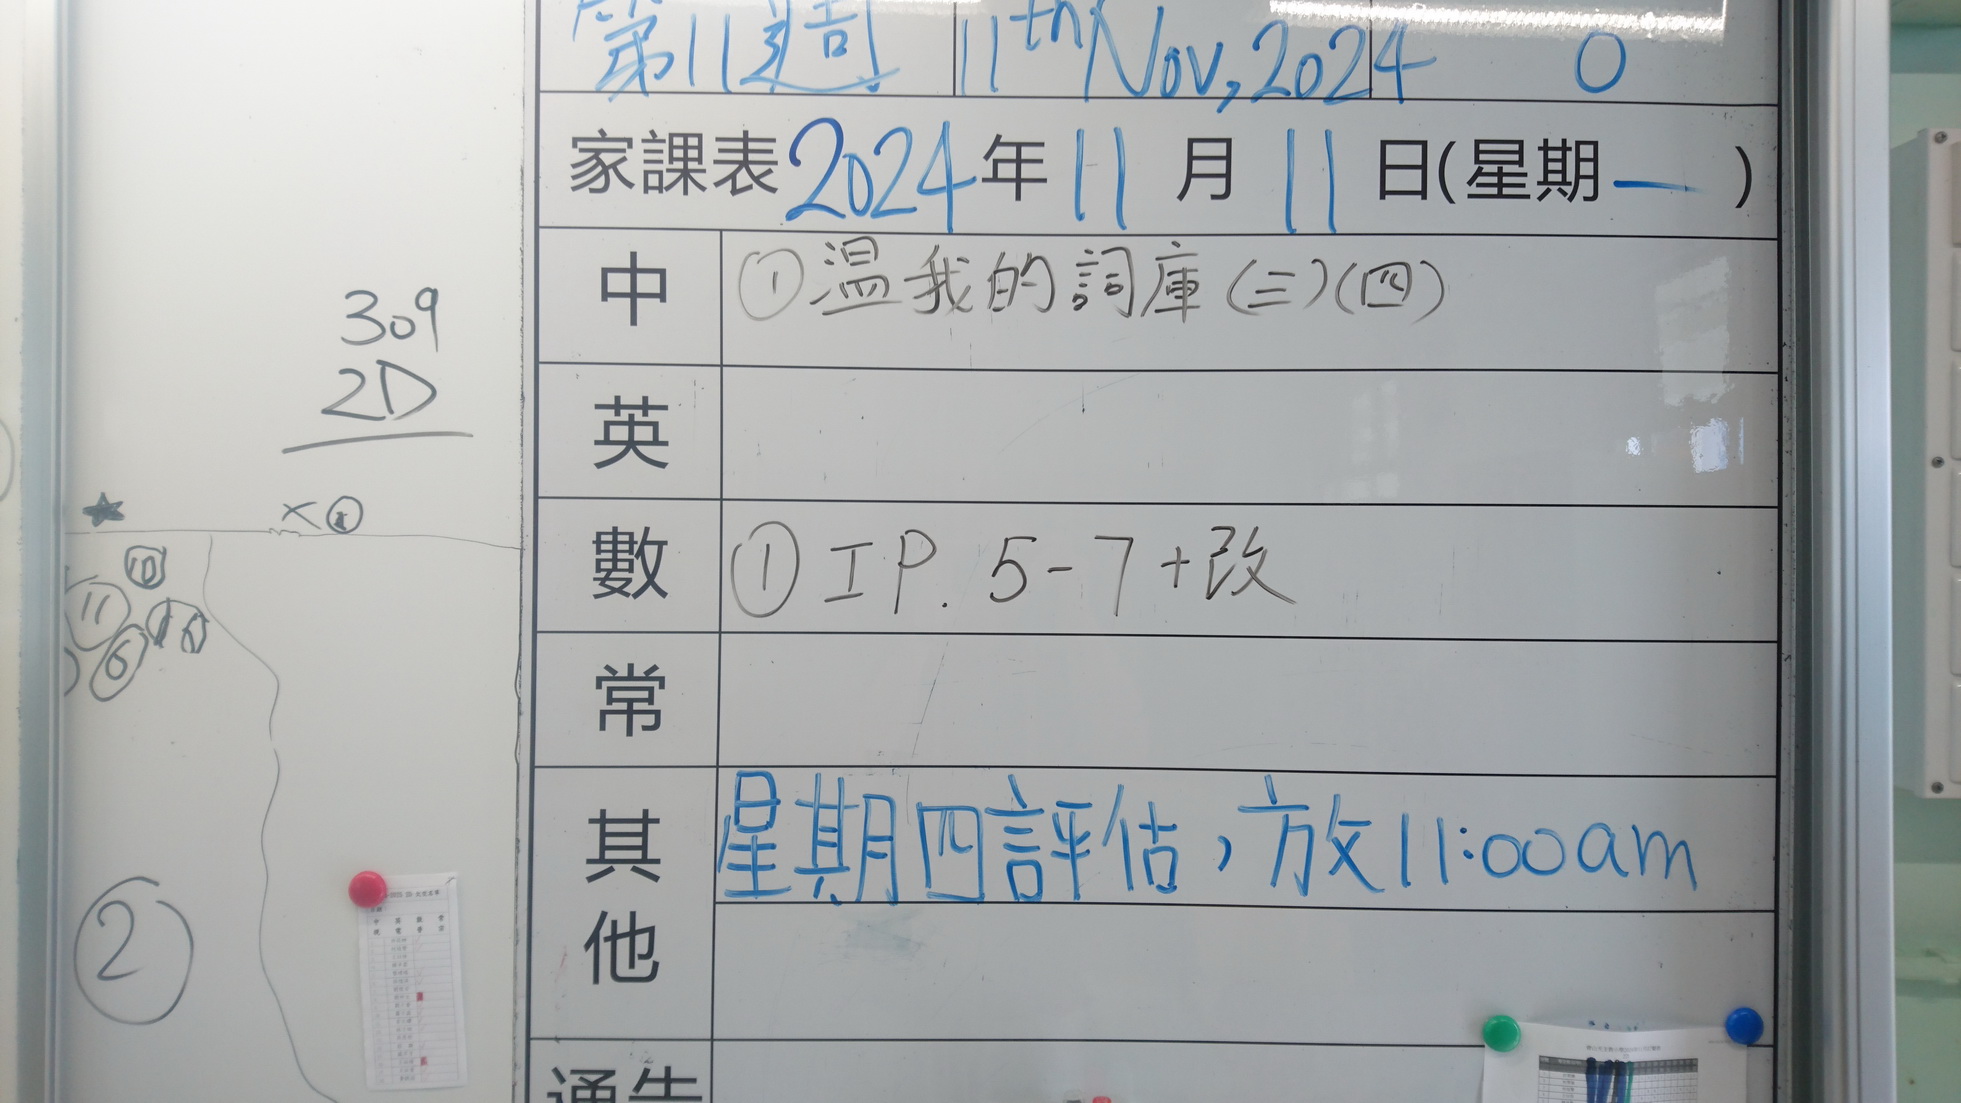 第11週 11th Nov, 2024 0
家課表 2024年 11 月 11 日(星期一)
中 ①温我的詞庫(三)(四)
英
數 ① IP. 5-7+改
常
其他 星期四評估，放11:00am
通告
309
2D
★ ×
10
11
6
2